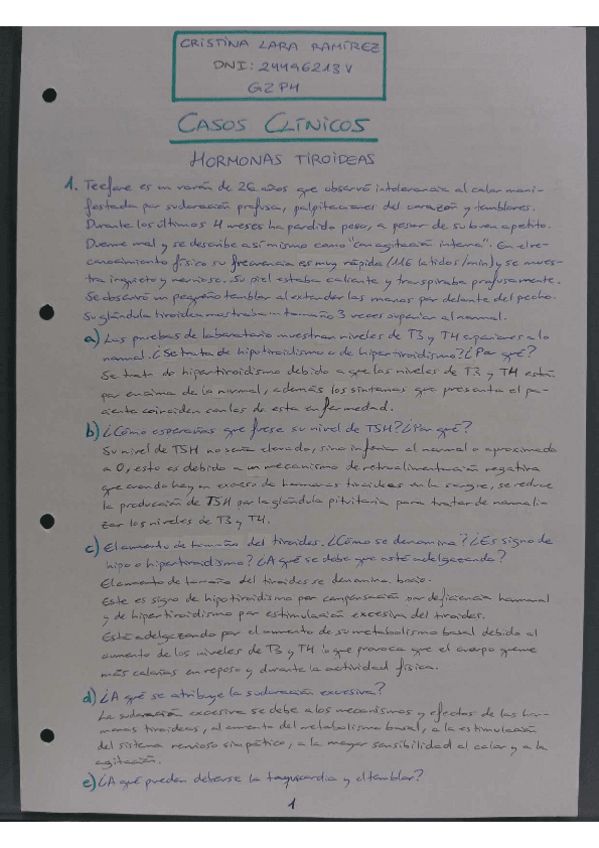 CRISTINA LARA RAMÍREZ
DNI: 24496213V
GZP4
CASOS CLÍNICOS
HORMONAS TIROIDEAS
1. Teefane es un varón de 26 años que observó intolerancia al calor mani-
festada por sudoración profusa, palpitaciones del corazón y temblores.
Durante los últimos 4 meses ha perdido peso, a pesar de su buen apetito.
Duerme mal y se describe así mismo como "con agitación interna". En el re-
conocimiento físico su frecuencia es muy rápida (116 latidos/min) y se mues-
tra inquieto y nervioso. Su piel estaba caliente y transpiraba profusamente.
Se observó un pequeño temblor al extender las manos por delante del pecho.
Su glándula tiroidea mostraba un tamaño 3 veces superior al normal.
a) Las pruebas de laboratorio muestran niveles de T3 y T4 superiores a lo
normal. ¿Se trata de hipotiroidismo o de hipertiroidismo? ¿Por qué?
Se trata de hipertiroidismo debido a que los niveles de T3 y T4 están
por encima de lo normal, además los síntomas que presenta el pa-
ciente coinciden con los de esta enfermedad.
b) ¿Cómo esperarías que fuese su nivel de TSH? ¿Por qué?
Su nivel de TSH no sería elevado, sino inferior al normal o aproximado
a 0, esto es debido a un mecanismo de retroalimentación negativa
que cuando hay un exceso de hormonas tiroideas en la sangre, se reduce
la producción de TSH por la glándula pituitaria para tratar de normali-
zar los niveles de T3 y T4.
c) El aumento de tamaño del tiroides. ¿Cómo se denomina? ¿Es signo de
hipo o hipertiroidismo? ¿A qué se debe que esté adelgazando?
El aumento de tamaño del tiroides se denomina bocio.
Este es signo de hipotiroidismo por compensación por deficiencia hormonal
y de hipertiroidismo por estimulación excesiva del tiroides.
Está adelgazando por el aumento de su metabolismo basal debido al
aumento de los niveles de T3 y T4 lo que provoca que el cuerpo queme
más calorías en reposo y durante la actividad física.
d) ¿A qué se atribuye la sudoración excesiva?
La sudoración excesiva se debe a los mecanismos y efectos de las hor-
monas tiroideas, al aumento del metabolismo basal, a la estimulación
del sistema nervioso simpático, a la mayor sensibilidad al calor y a la
agitación.
e) ¿A qué pueden deberse la taquicardia y el temblor?
1